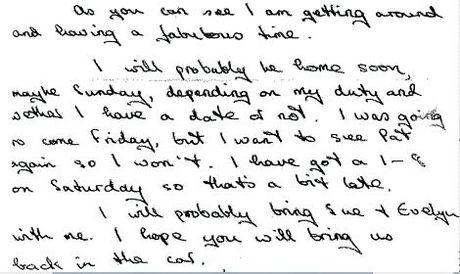 As you can see I am getting around
and having a fabulous time.
I will probably be home soon,
maybe Sunday, depending on my duty and
wether I have a date or not. I was going
to come Friday, but I want to see Pat
again so I won't. I have got a 1 - 8
on Saturday so thats a bit late.
I will probably bring Sue & Evelyn
with me. I hope you will bring us
back in the car.